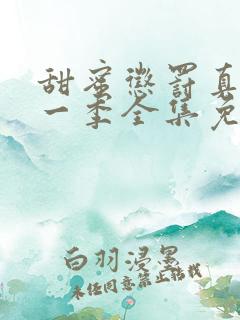 甜蜜懲罰真
一季全集免
白羽浸墨
未经同意禁止转载